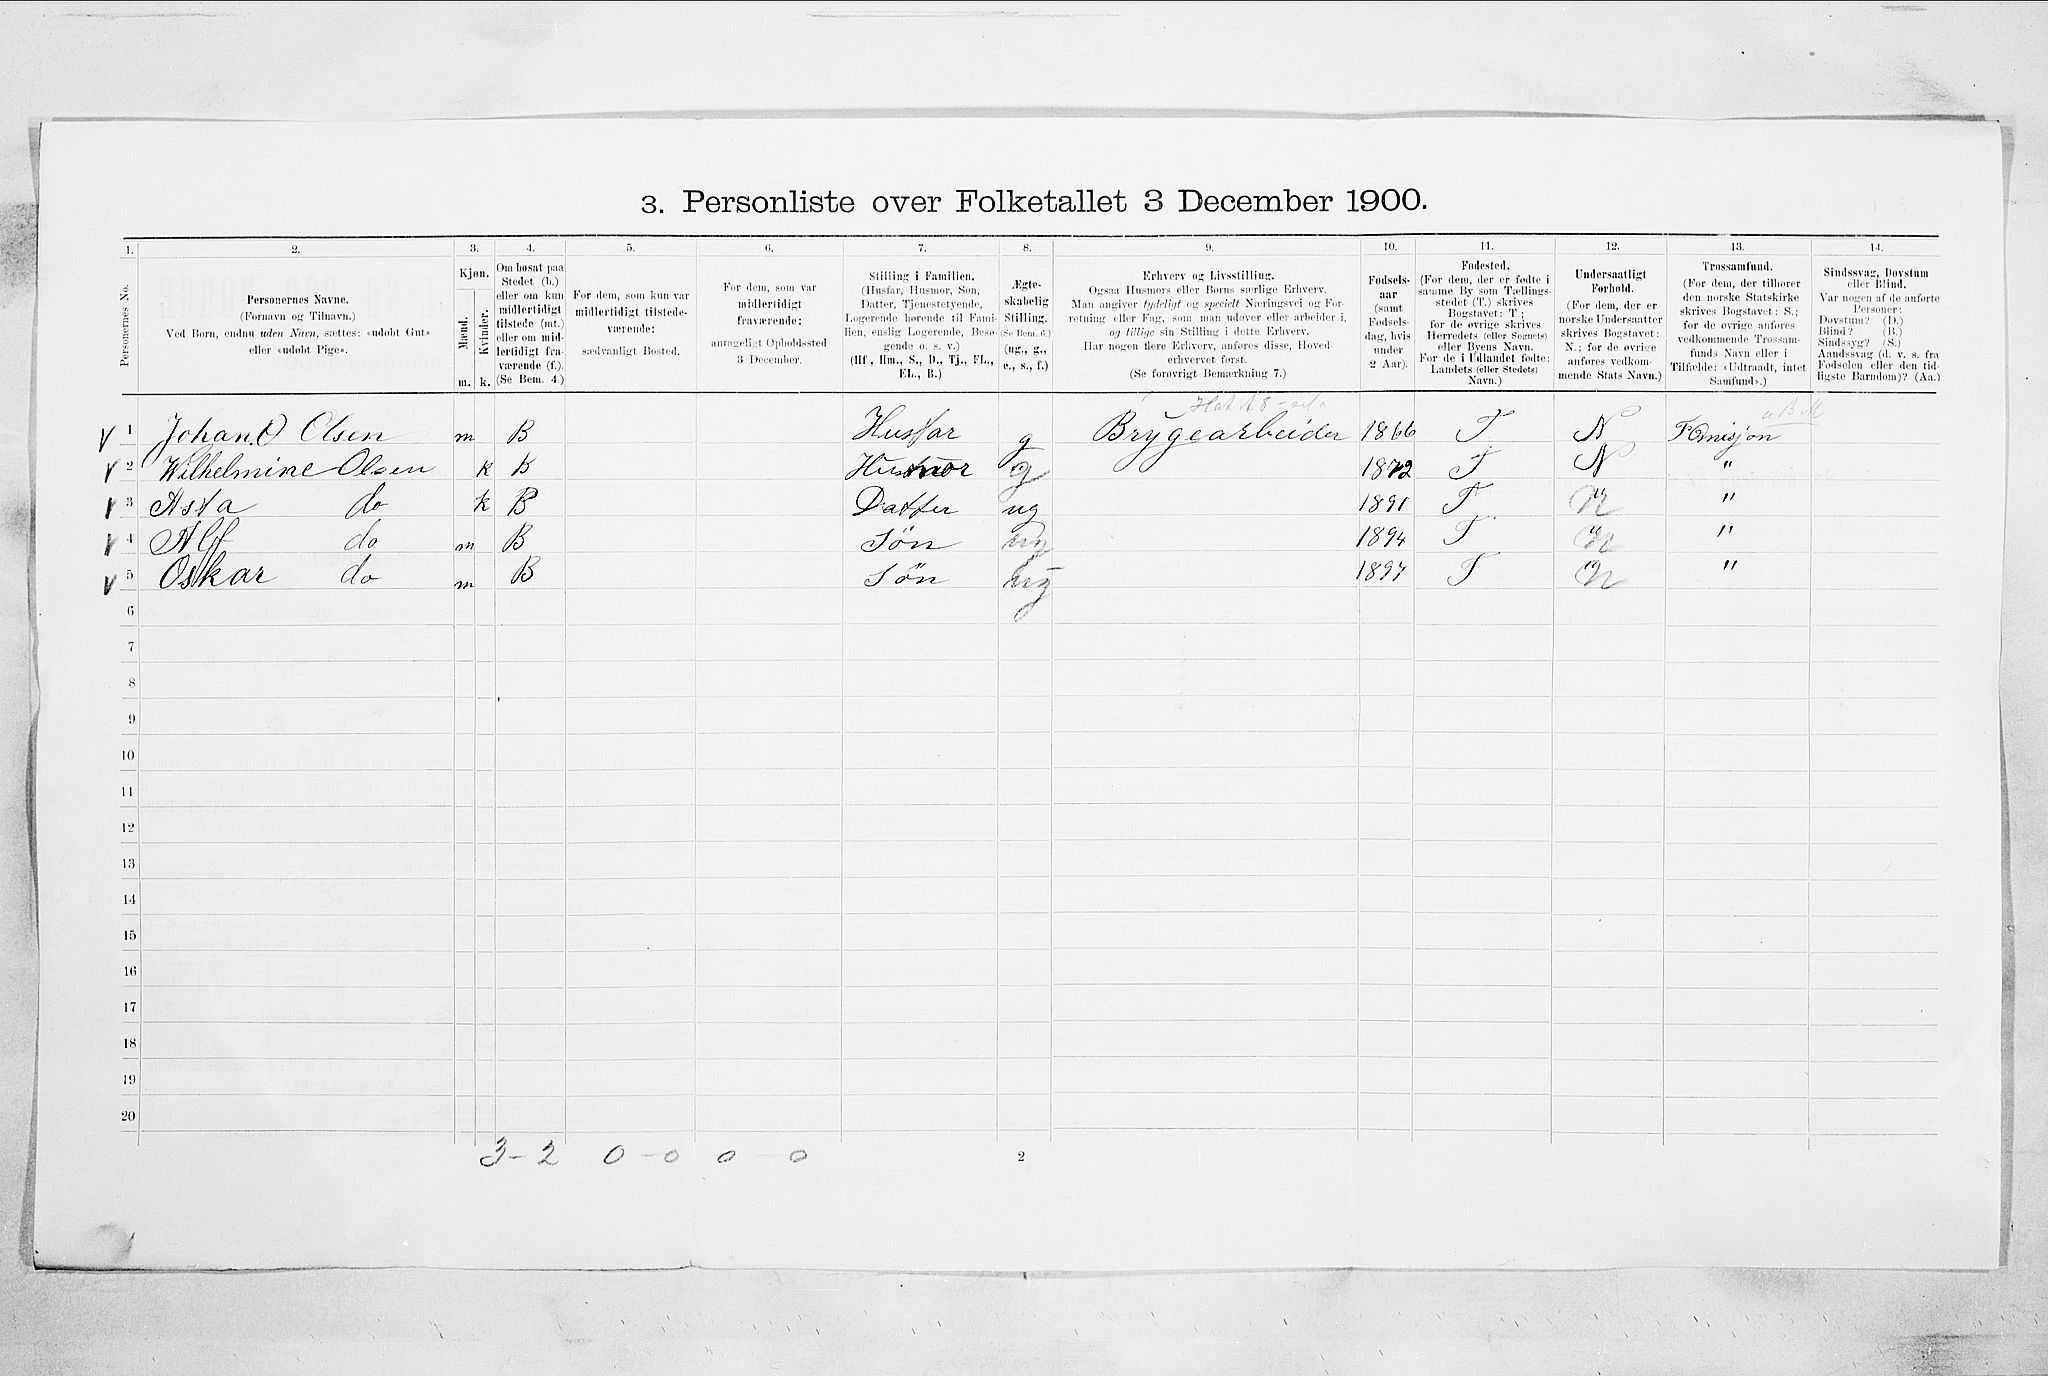 3. Personliste over Folketallet 3 December 1900.
1. 2. 3. 4. 5. 6. 7. 8. 9. 10. 11. 12. 13. 14.
Personernes No.
Personernes Navne.
(Fornavn og Tilnavn.)
Ved Børn, endnu uden Navn, sættes: «udøbt Gut»
eller «udøbt Pige».
Kjøn.
Mænd.
Kvinder.
m. k.
Om bosat paa
Stedet (b.)
eller om kun
midlertidigt
tilstede (mt.)
eller om mid-
lertidigt fra-
værende (f.).
(Se Bem. 4.)
For dem, som kun var
midlertidigt tilstede-
værende:
sædvanligt Bosted.
For dem, som var
midlertidigt
fraværende:
antageligt Opholdssted
3 December.
Stilling i Familien.
(Husfar, Husmor, Søn,
Datter, Tjenestetyende,
Logerende hørende til Fami-
lien, enslig Logerende, Besø-
gende o. s. v.)
(Hf, Hm., S., D., Tj., FL.,
EL., B.)
Ægte-
skabelig
Stilling.
(Se Bem. 6.)
(ug., g.,
e., s., f.)
Erhverv og Livsstilling.
Ogsaa Husmors eller Børns særlige Erhverv.
Man angiver tydeligt og specielt Næringsvei og For-
retning eller Fag, som man udøver eller arbeider i,
og tillige sin Stilling i dette Erhverv.
Har nogen flere Erhverv, anføres disse, Hoved-
erhvervet først.
(Se forøvrigt Bemærkning 7.)
Fødsels-
aar
(samt
Fødsels-
dag, hvis
under
2 Aar).
Fødested.
(For dem, der er fødte i
samme By som Tællings-
stedet (T.) skrives
Bogstavet: T;
for de øvrige skrives
Herredets (eller Sognets)
eller Byens Navn.
For de i Udlandet fødte:
Landets (eller Stedets)
Navn.)
Undersaatligt
Forhold.
(For dem, der er
norske Undersaatter
skrives Bogstavet:
N.; for de øvrige
anføres vedkom-
mende Stats Navn.)
Trossamfund.
(For dem, der tilhører
den norske Statskirke
skrives Bogstavet: S.;
for de øvrige anføres
vedkommende Trossam-
funds Navn eller i
Tilfælde: «Udtraadt, intet
Samfund».)
Sindssvag, Døvstum
eller Blind.
Var nogen af de anførte
Personer:
Døvstum? (D.)
Blind? (B.)
Sindssyg? (S.)
Aandssvag (d. v. s. fra
Fødselen eller den tid-
ligste Barndom)? (Aa.)
1 Johan O Olsen m B Husfar g Brygearbeider 1866 T N
2 Wilhelmine Olsen k B Husmor g 1872 T N "
3 Asta do k B Datter ug 1891 T N "
4 Alf do m B Søn ug 1894 T N "
5 Oskar do m B Søn ug 1897 T N "
6
7
8
9
10
11
12
13
14
15
16
17
18
19
20
3-2 0-0 0-0
2